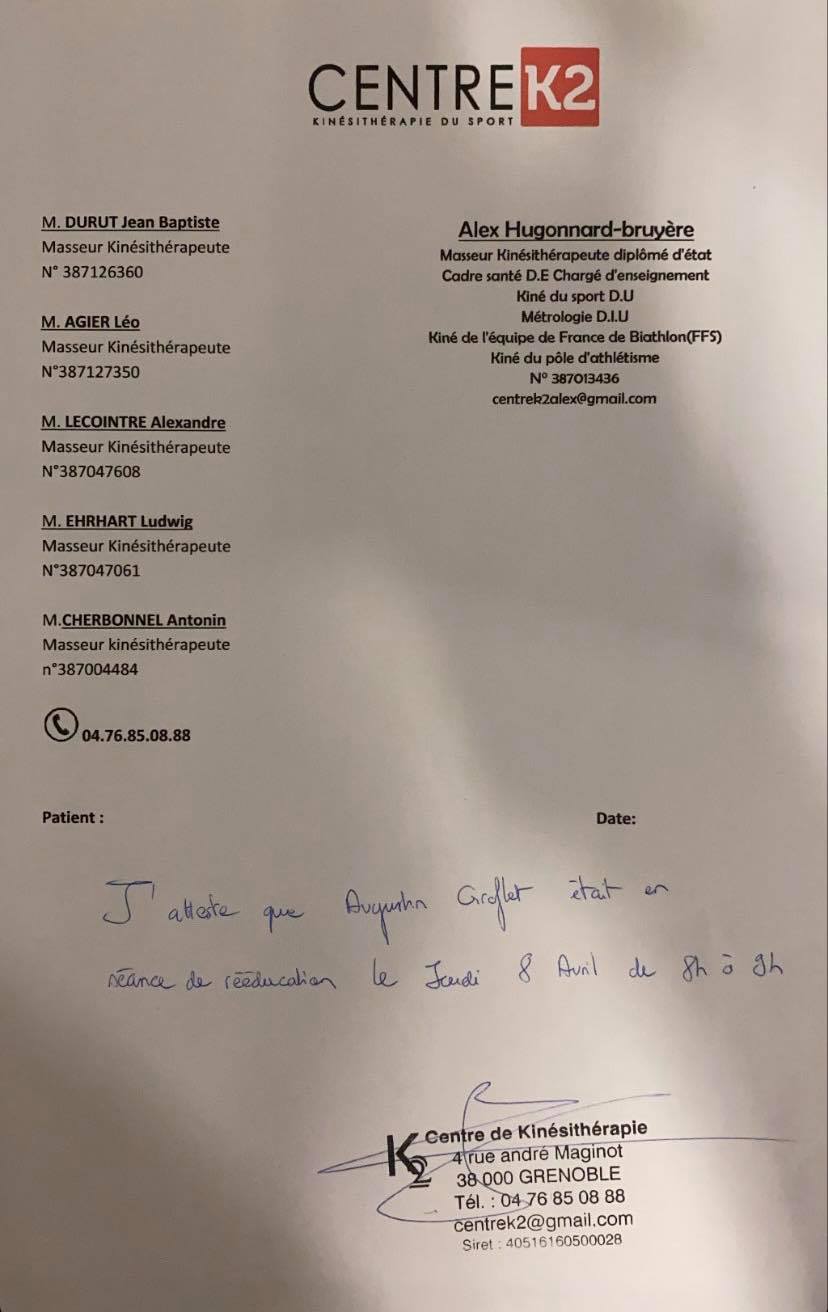 CENTRE K2
KINÉSITHÉRAPIE DU SPORT
M. DURUT Jean Baptiste
Masseur Kinésithérapeute
N° 387126360
M. AGIER Léo
Masseur Kinésithérapeute
N°387127350
M. LECOINTRE Alexandre
Masseur Kinésithérapeute
N°387047608
M. EHRHART Ludwig
Masseur Kinésithérapeute
N°387047061
M.CHERBONNEL Antonin
Masseur kinésithérapeute
n°387004484
04.76.85.08.88
Alex Hugonnard-bruyère
Masseur Kinésithérapeute diplômé d'état
Cadre santé D.E Chargé d'enseignement
Kiné du sport D.U
Métrologie D.I.U
Kiné de l'équipe de France de Biathlon(FFS)
Kiné du pôle d'athlétisme
N° 387013436
centrek2alex@gmail.com
Patient :
Date:
J'atteste que Augustin Giroflet était en
séance de rééducation le Jeudi 8 Avril de 8h à 9h
K2 Centre de Kinésithérapie
4 rue andré Maginot
38 000 GRENOBLE
Tél. : 04 76 85 08 88
centrek2@gmail.com
Siret : 40516160500028